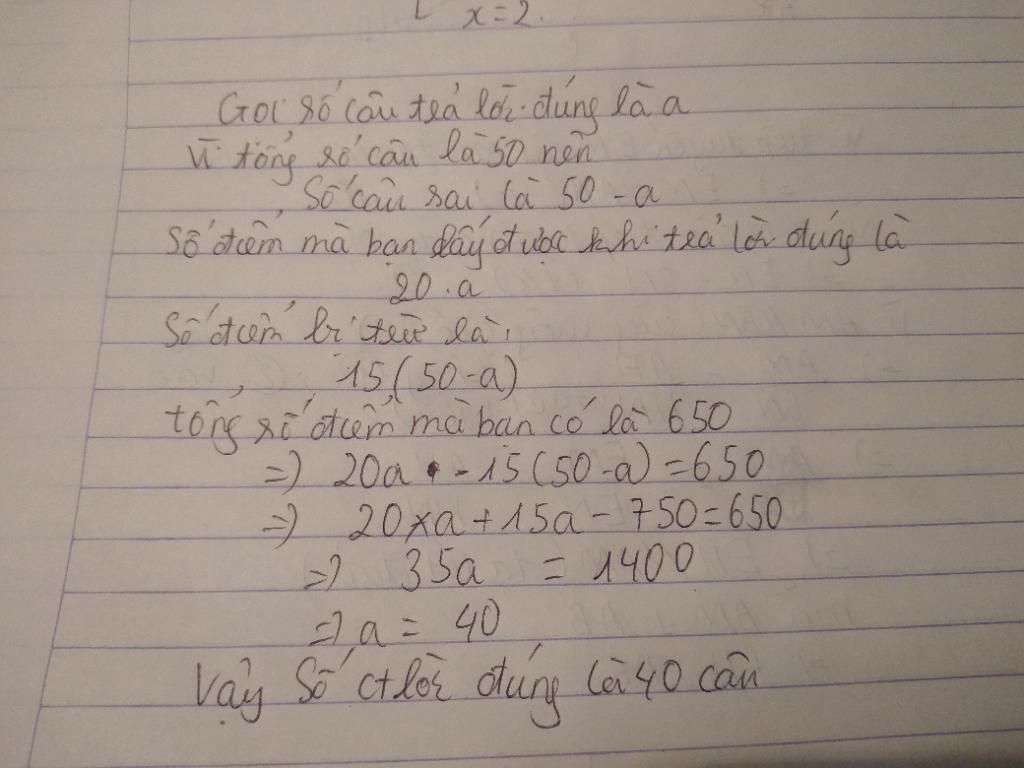 x=2.
Gọi số câu trả lời đúng là a
Vì tổng số câu là 50 nên
Số câu sai là 50-a
Số điểm mà bạn đấy được khi trả lời đúng là
20.a
Số điểm bị trừ là:
15(50-a)
tổng số điểm mà bạn có là 650
=) 20a - 15(50-a) = 650
=) 20×a + 15a - 750 = 650
=) 35a = 1400
=) a = 40
Vậy Số lời đúng là 40 câu